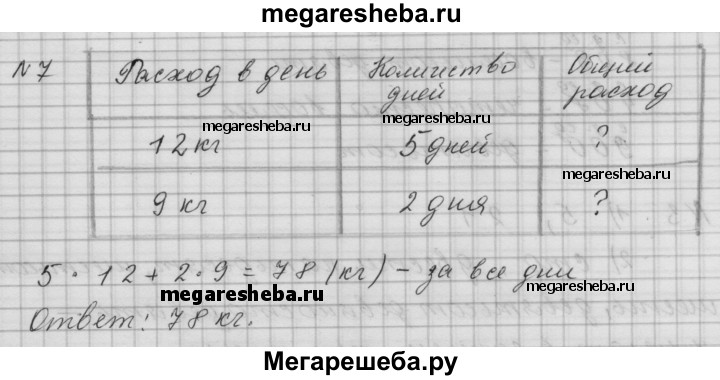 megaresheba.ru
№7 Расход в день Количество дней Общий расход
megaresheba.ru
12 кг 5 дней ?
megaresheba.ru
megaresheba.ru
9 кг 2 дня ?
5 · 12 + 2 · 9 = 78 (кг) – за все дни
megaresheba.ru
megaresheba.ru
Ответ: 78 кг.
Мегарешеба.ру